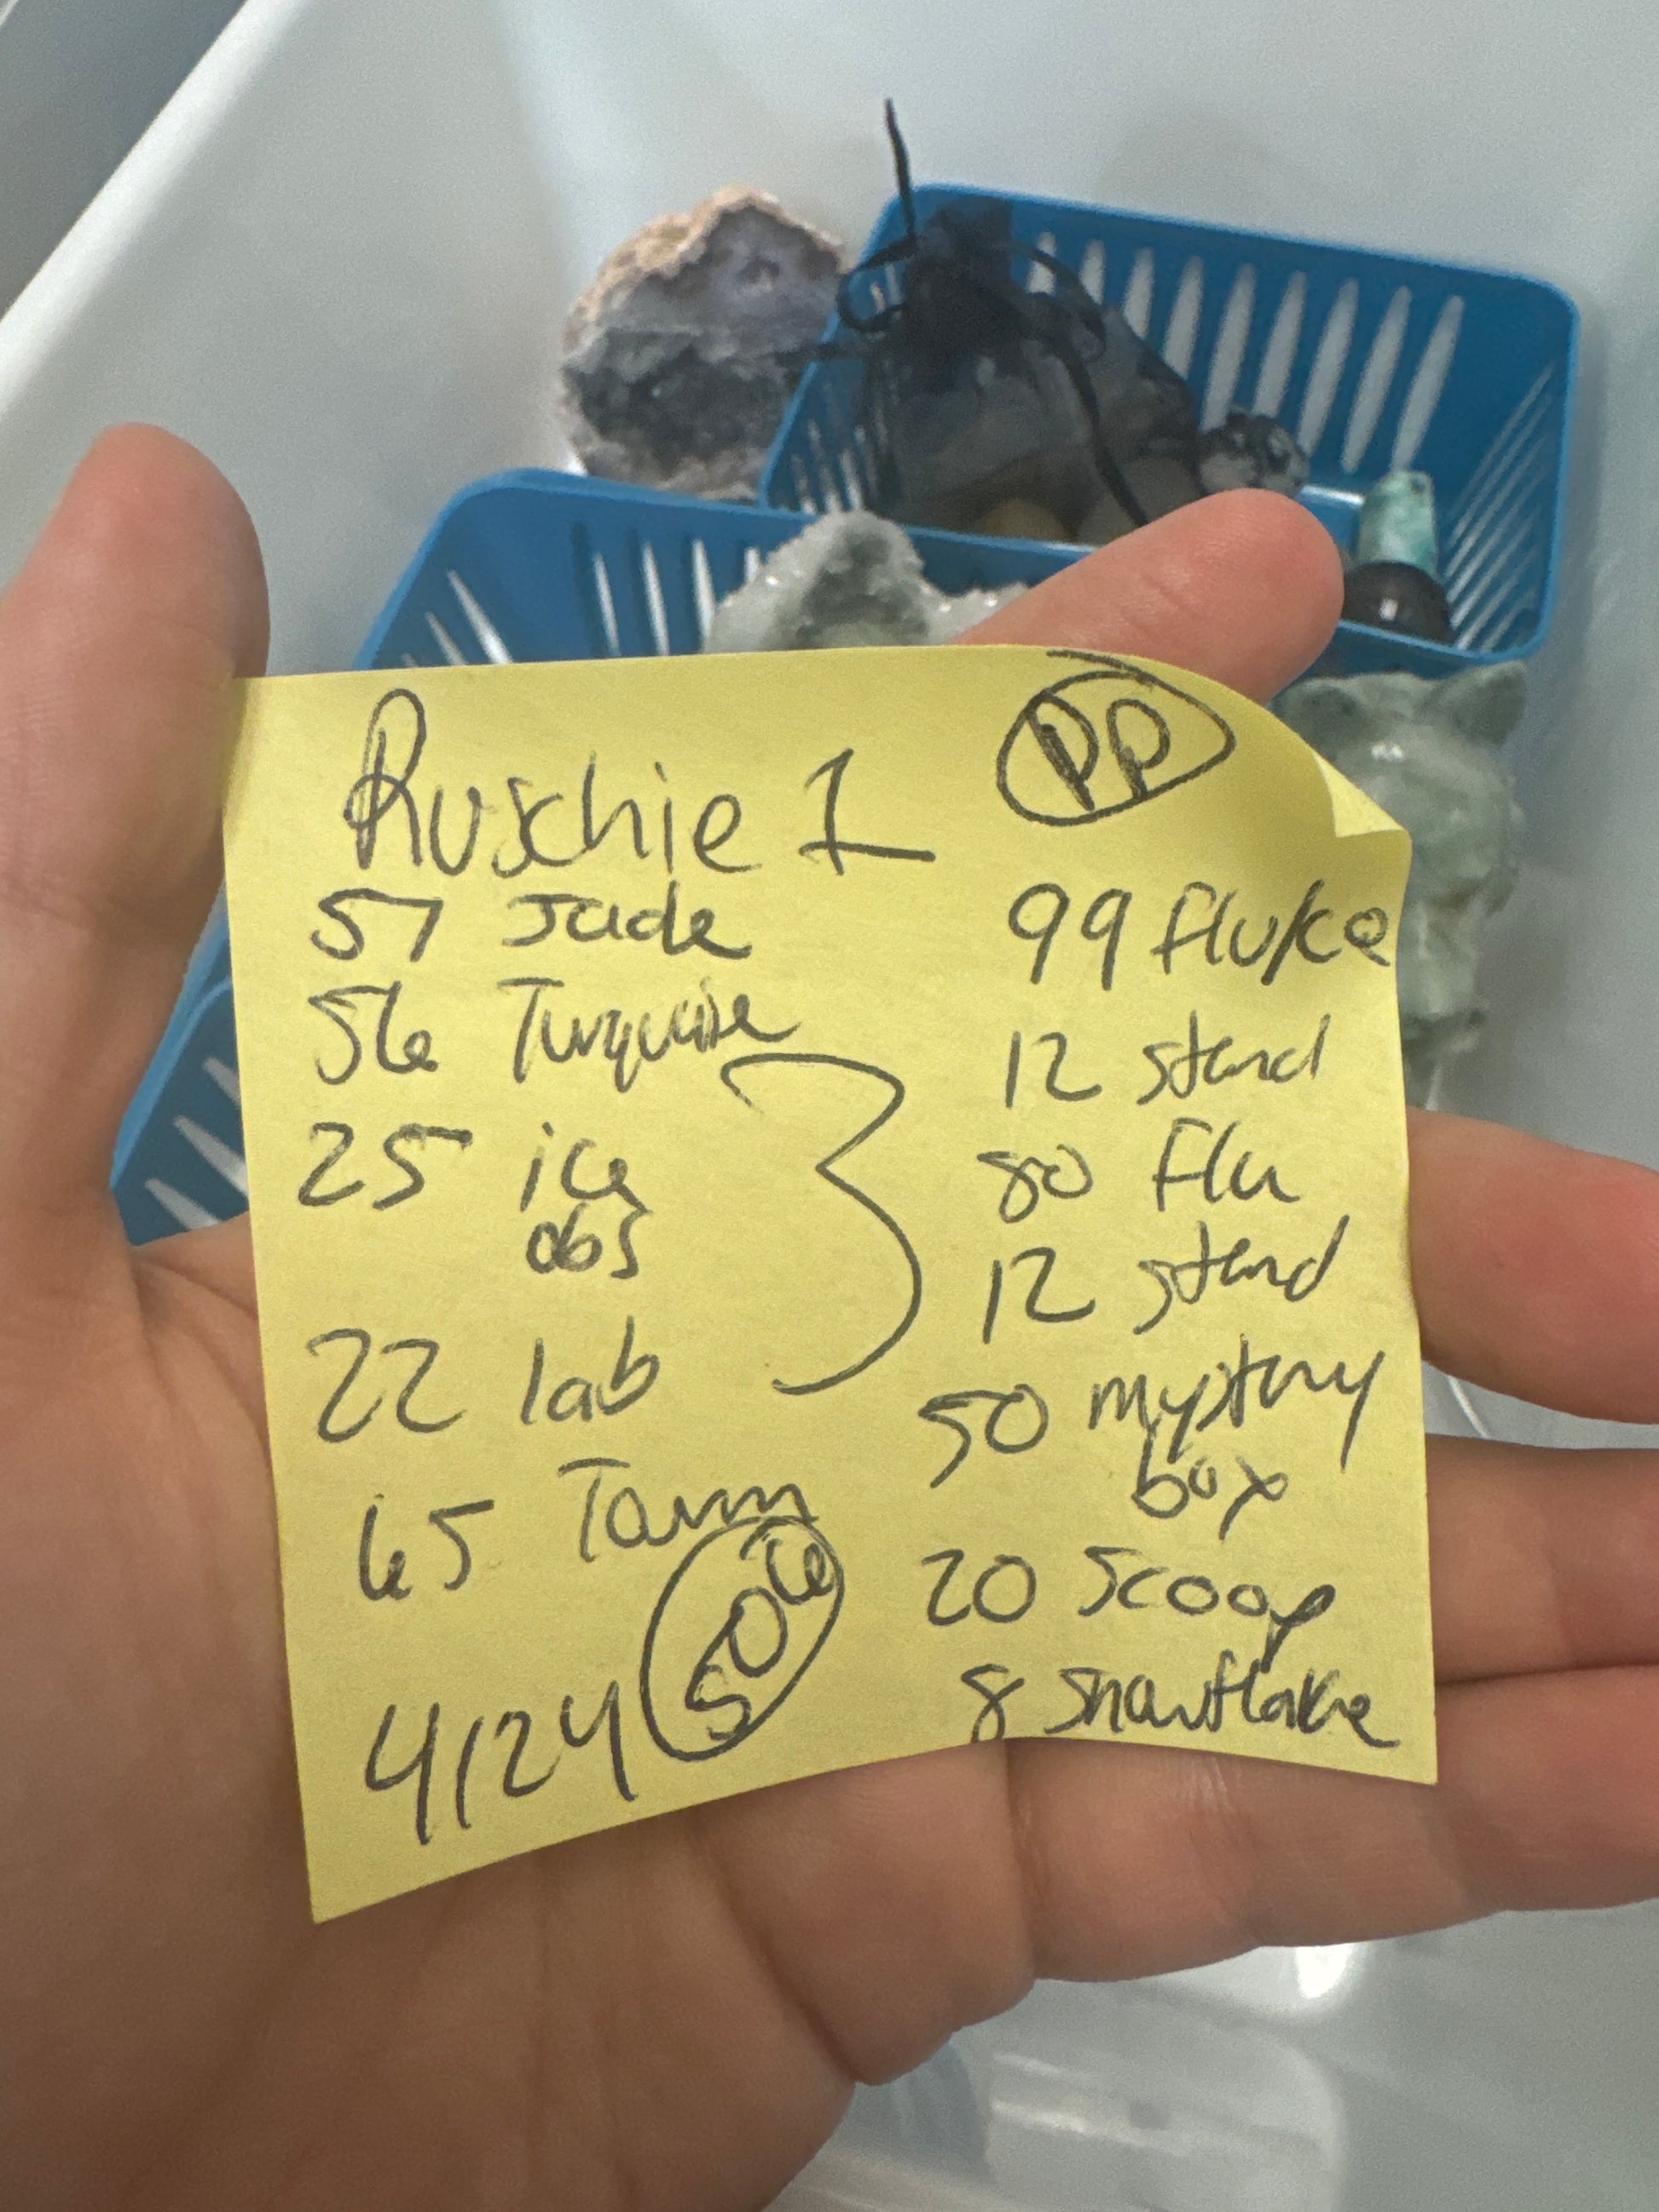 Ruschie 1
PP
57 Jade
56 Turquoise
25 ice
obs
22 lab
65 Tourm
506
4124
99 fluke
12 stand
80 flu
12 stand
50 mystery
box
20 scoop
8 snowflake